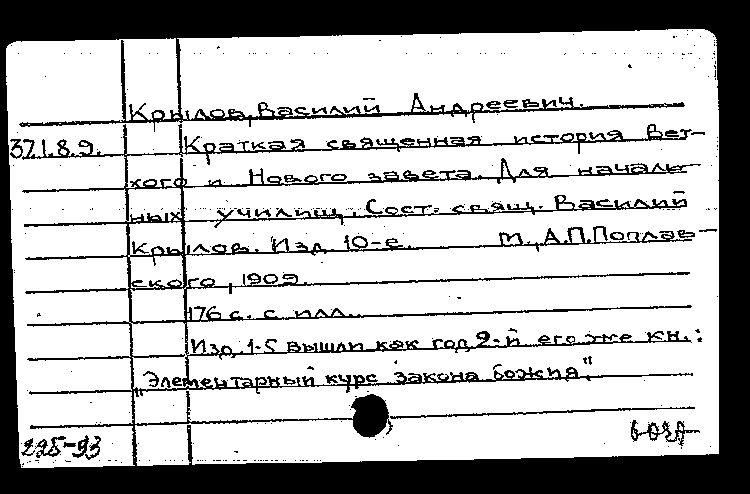 Крылов, Василий Андреевич.
37.1.8.9. Краткая священная история Вет-
хого и Нового завета. Для началь-
ных училищ. Сост. свящ. Василий
Крылов. Изд. 10-е. М., А.П.Поплав-
ского, 1909.
176 с. с илл.
Изд. 1-5 вышли как год 2-й его же кн.:
„Элементарный курс закона божия".
225-93